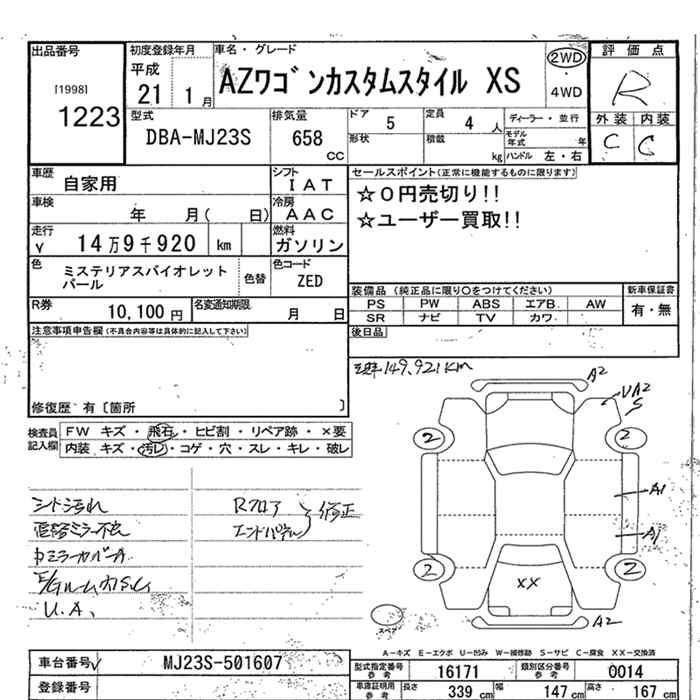 出品番号 初度登録年月 車名・グレード 評価点
[1998] 平成 2WD
1223 21 1月 AZワゴンカスタムスタイル XS ・ 4WD R
型式 排気量 ドア 5 定員 4 人 ディーラー・並行 外装 内装
DBA-MJ23S 658 CC 形状 積載 kg モデル年式 年 C C
ハンドル 左・右
車歴 自家用 シフト IAT セールスポイント(正常に機能するものに限ります)
車検 年 月( 日) 冷房 AAC ☆0円売切り!!
走行 14万9千920 km 燃料 ガソリン ☆ユーザー買取!!
色 ミステリアスバイオレットパール 色替 色コード ZED
装備品 (純正品に限り○をつけてください) 新車保証書
R券 10,100円 名変通知期限 月 日 PS PW ABS エアB. AW 有・無
SR ナビ TV カワ.
注意事項申告欄(不具合内容等は具体的に記入して下さい) 後日品
149,921KM
修復歴 有〔箇所 〕
A2
UA2
S
検査員記入欄 FW キズ・飛石・ヒビ割・リペア跡・×要
内装 キズ・汚レ・コゲ・穴・スレ・キレ・破レ
2 2
シート汚れ Rフロア 修正
エンドパネル
A1
A1
2 2
U.A.
XX
スペア
A2
A-キズ E-エクボ U-凹み W-補修跡 S-サビ C-腐食 XX-交換済
車台番号 MJ23S-501607 型式指定番号 参考 16171 類別区分番号 参考 0014
登録番号 車庫証明用 参考 長さ 339 cm 幅 147 cm 高さ 167 cm